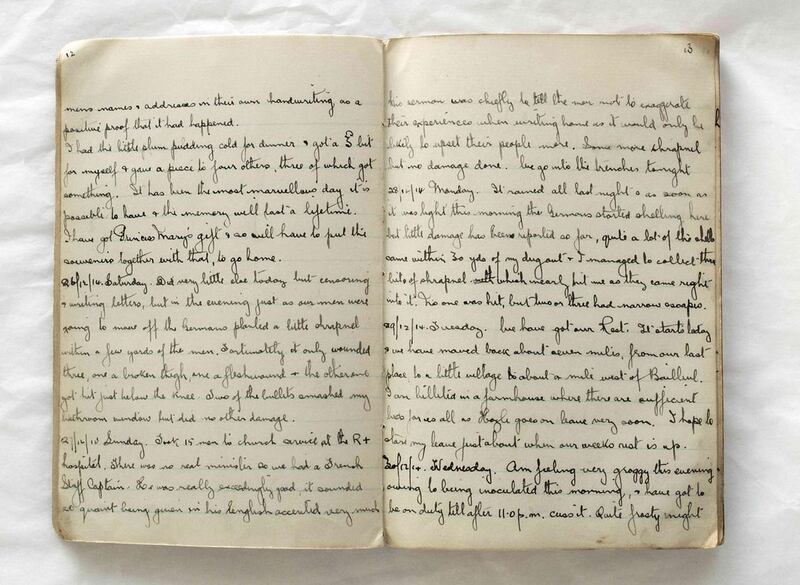 12
mens names & addresses in their own handwriting as a
positive proof that it had happened.
I had the little plum pudding cold for dinner & got a bit
for myself & gave a piece to four others, three of which got
something. It has been the most marvellous day, it is
possible to have & the memory will last a lifetime.
I have got Princess Mary's gift & so will have to put the
souvenirs together with that, to go home.
26/12/14. Saturday. Did very little else today but censoring
& writing letters, but in the evening just as our men were
going to move off the Germans planted a little shrapnel
within a few yards of the men. Fortunately it only wounded
three, one a broken thigh, one a flesh wound & the other one
got hit just below the knee. Two of the bullets smashed my
bathroom window but did no other damage.
27/12/14 Sunday. Took 15 men to church service at the
hospital. There was no real minister so we had a French
Staff Captain. He was really exceedingly good, it sounded
so quaint being given in his English accented very much
13
his sermon was chiefly to tell the men not to exaggerate
their experiences when writing home as it would only be
likely to upset their people more. Some more shrapnel
but no damage done. We go into the trenches tonight
28/12/14 Monday. It rained all last night & as soon as
it was light this morning the Germans started shelling here
but little damage has been reported so far, quite a lot of the shells
came within 30 yds of my dug out & I managed to collect three
bits of shrapnel which nearly hit me as they came right
into it. No one was hit, but two or three had narrow escapes.
29/12/14 Tuesday. We have got our Rest. It starts today
& we have moved back about seven miles, from our last
place to a little village about a mile west of Bailleul.
I am billeted in a farmhouse where there are sufficient
beds for us all as goes on leave very soon. I hope to
start my leave just about when our weeks rest is up.
30/12/14. Wednesday. Am feeling very groggy this evening
owing to being inoculated this morning, & have got to
be on duty till after 11.0 p.m. cuss it. Quite frosty night